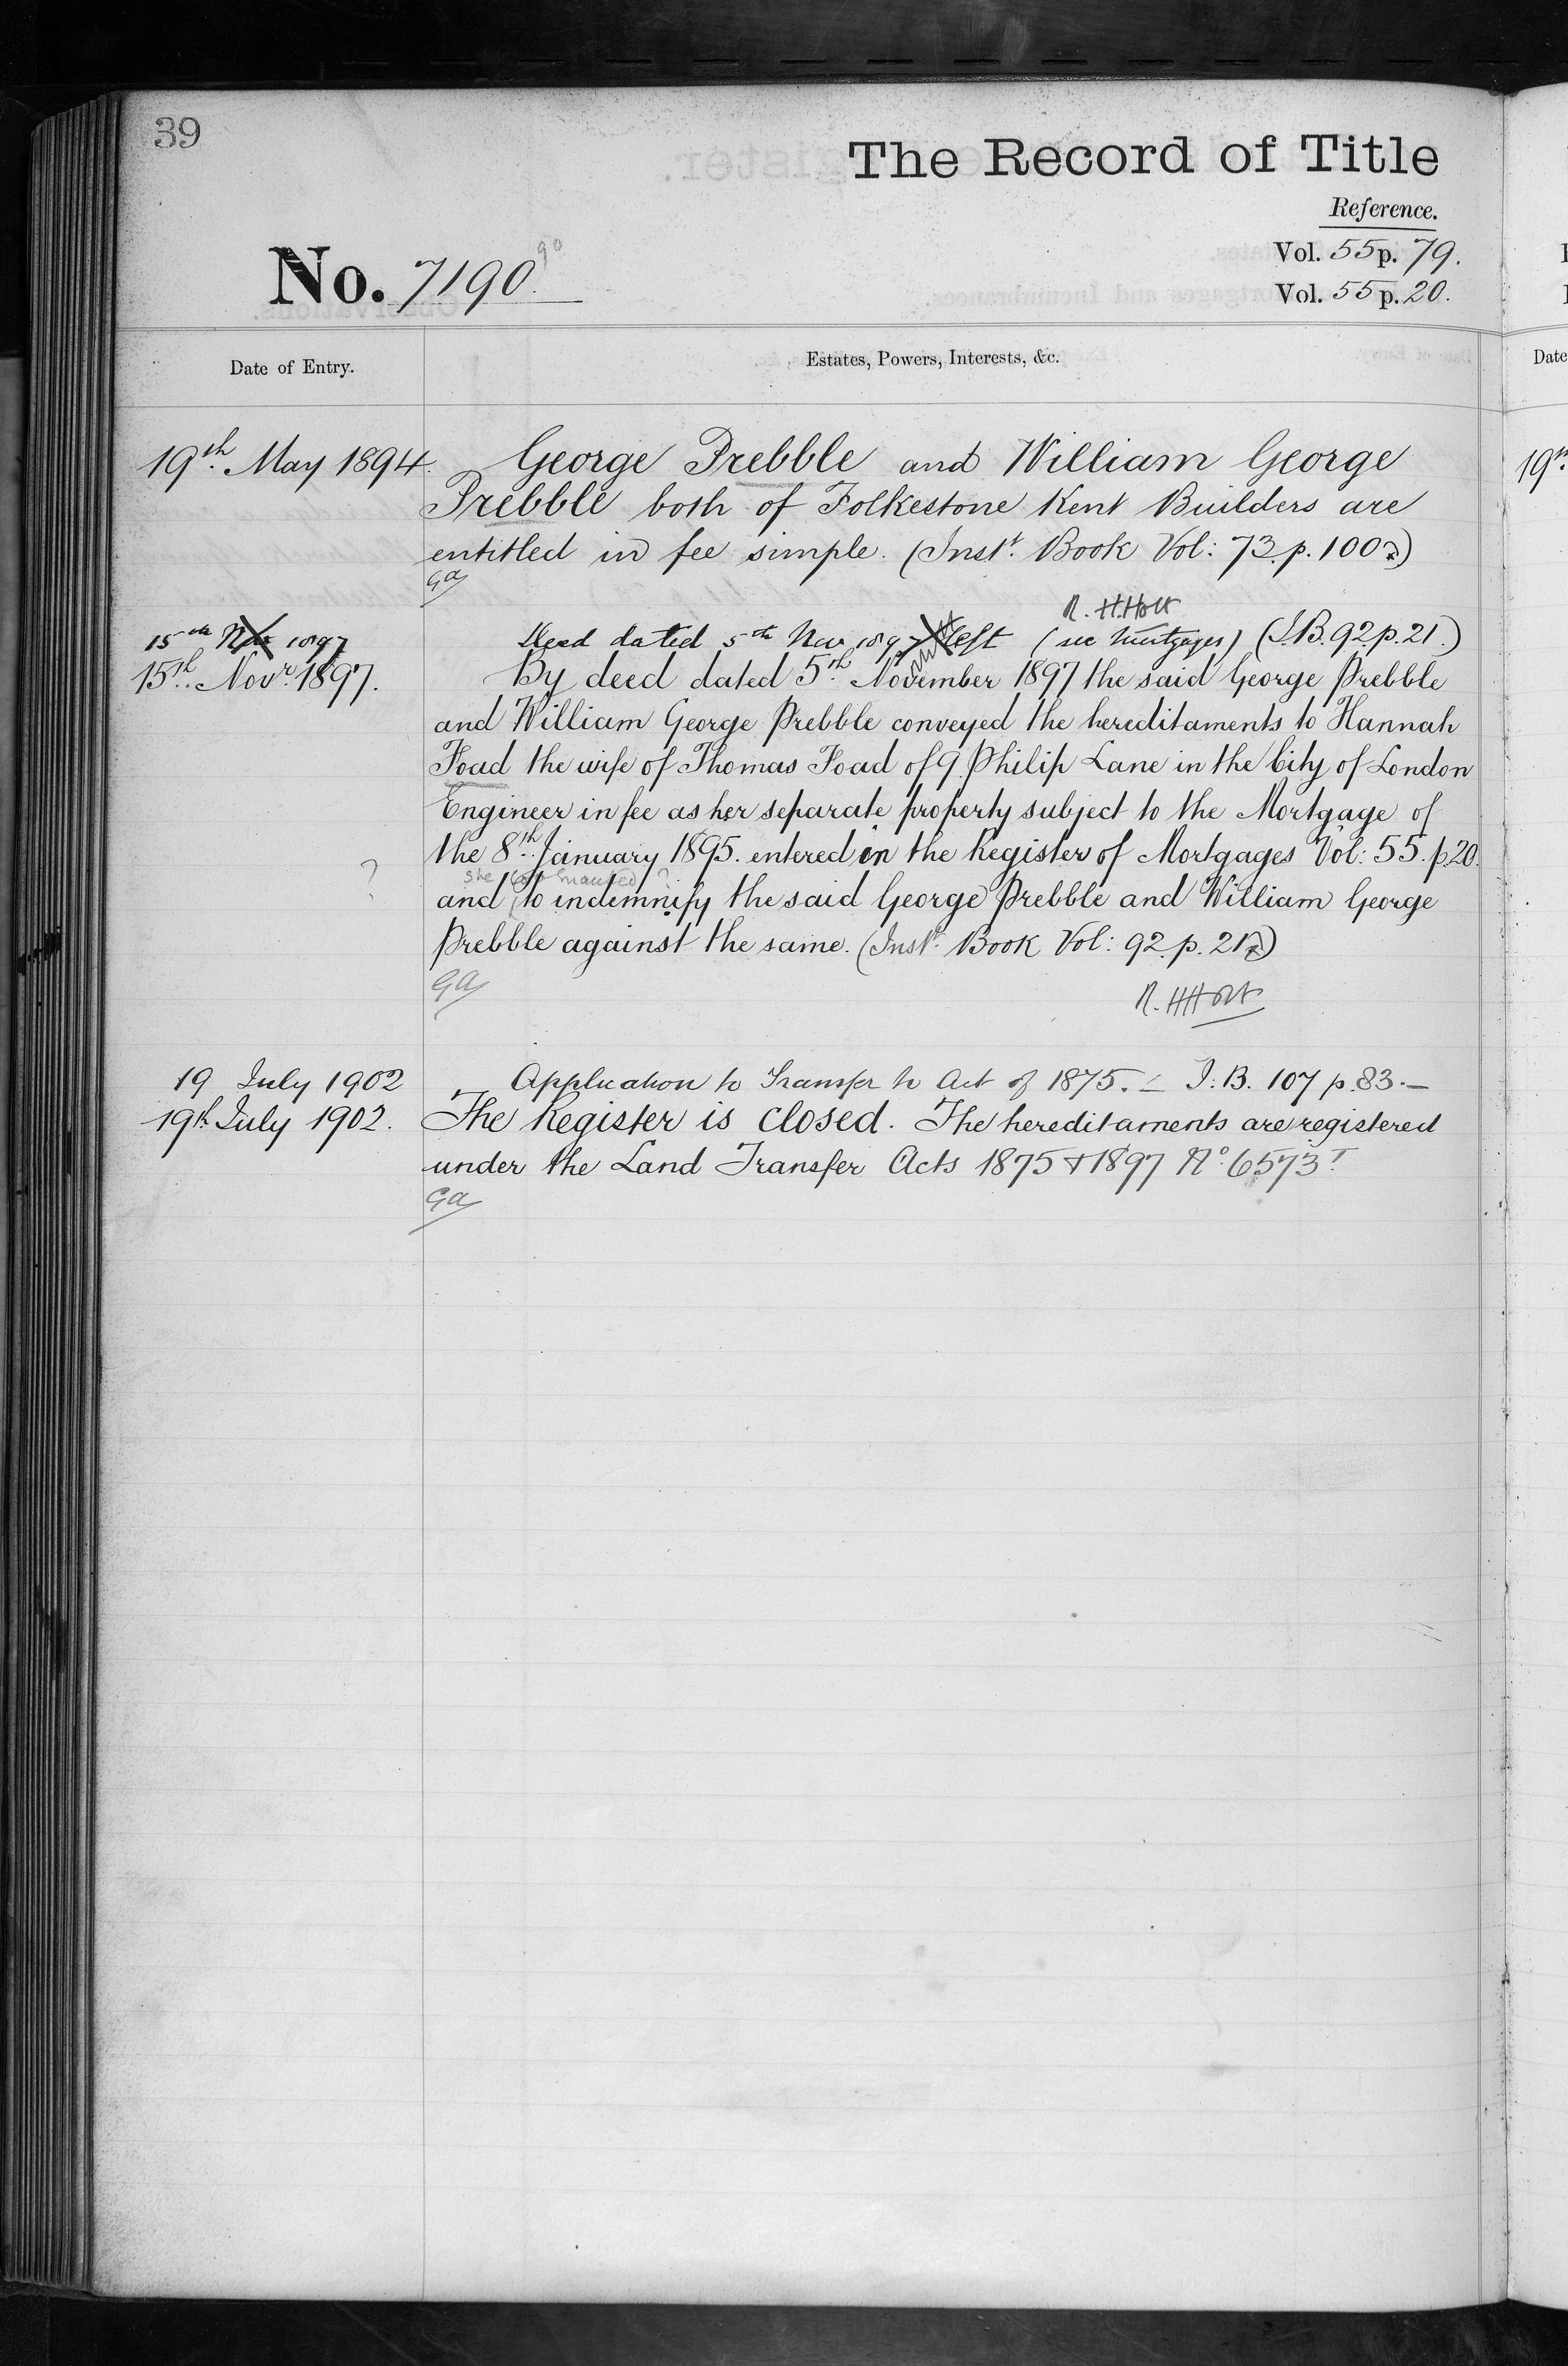 39
The Record of Title
Reference.
Vol. 55 p. 79.
No. 7190.
Vol. 55 p. 20.
Date of Entry.
Estates, Powers, Interests, &c.
19th May 1894.
George Prebble and William George
Prebble both of Folkestone Kent Builders are
entitled in fee simple. (Inst. Book Vol: 73. p. 100)
Ga
R. H. Holt
15th Nov 1897
Deed dated 5th Nov 1897 left (see Mortgages) (I.B. 92 p. 21.)
15th Novr. 1897.
By deed dated 5th November 1897 the said George Prebble
and William George Prebble conveyed the hereditaments to Hannah
Foad the wife of Thomas Foad of 9 Philip Lane in the City of London
Engineer in fee as her separate property subject to the Mortgage of
the 8th January 1895. entered in the Register of Mortgages Vol: 55. p. 20.
she
?
and to indemnify the said George Prebble and William George
Prebble against the same. (Inst. Book Vol: 92. p. 21)
Ga
R. H Holt
19 July 1902
Application to Transfer to Act of 1875. — I.B. 107 p. 83. —
19th July 1902.
The Register is closed. The hereditaments are registered
under the Land Transfer Acts 1875 & 1897 No. 6573
Ga
Date
19th